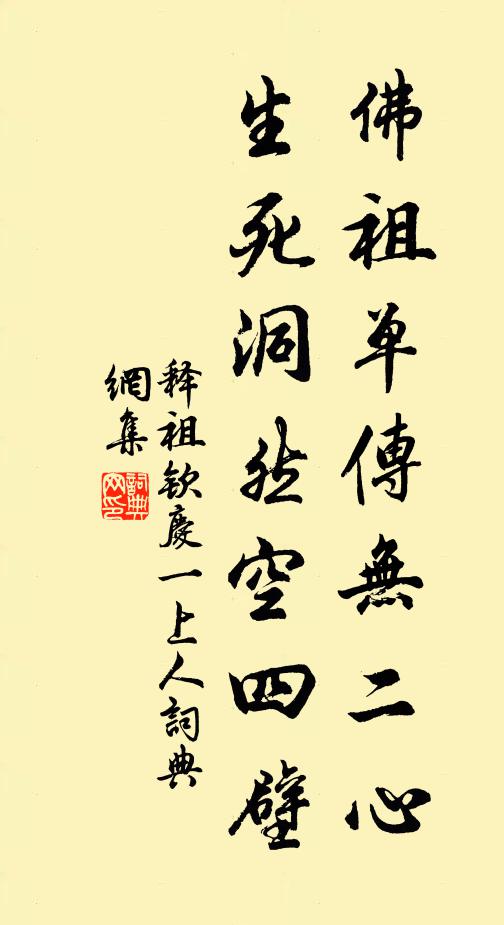 佛祖单傳無二心
生死洞然空四壁
释祖钦慶一上人詞典
網集
詞典
网印